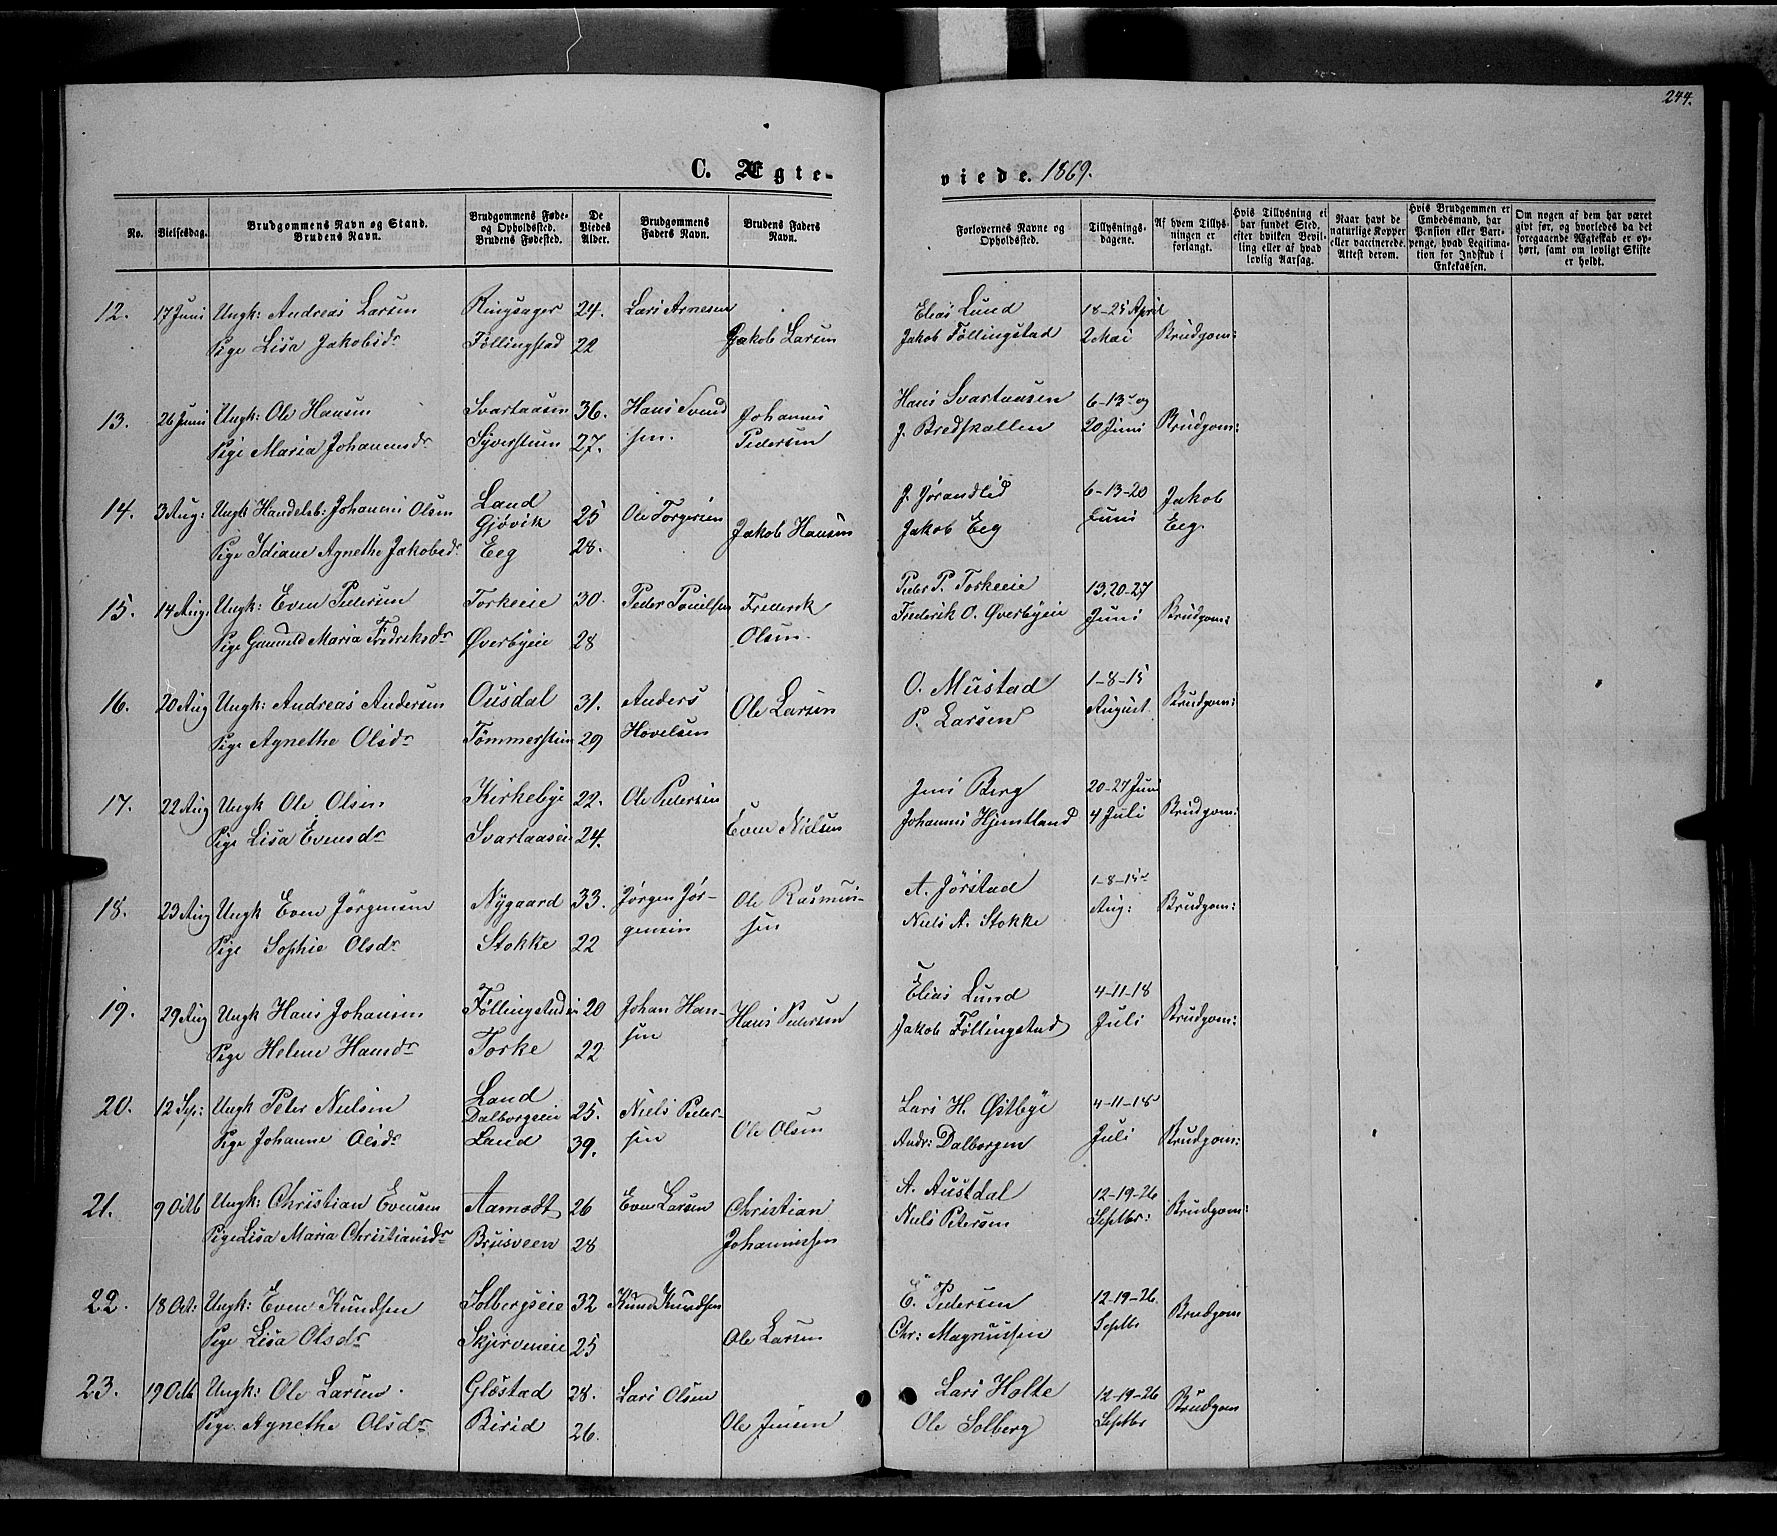 244.
C. Ægte-
viede. 1869.
No. Vielsesdag. Brudgommens Navn og Stand. Brudens Navn. Brudgommens Føde- og Opholdssted. Brudens Fødested. De Viedes Alder. Brudgommens Faders Navn. Brudens Faders Navn.
Forlovernes Navne og Opholdssted. Tillysningsdagene. Af hvem Tillysningen er forlangt. Hvis Tillysning ei har fundet Sted, efter hvilken Bevilling eller af hvad lovlig Aarsag. Naar havt de naturlige Kopper eller vaccinerede. Attest derom. Hvis Brudgommen er Embedsmand, har Pension eller Vartpenge, hvad Legitimation for Indskud i Enkekassen. Om nogen af dem har været givt før, og hvorledes da det foregaaende Ægteskab er ophørt, samt om lovligt Skifte er holdt.
12. 17 Juni Ungk: Andreas Larsen Ringsager 24. Lars Arnesen Elias Lund 18-25 April
Pige Lisa Jakobsdr Føllingstad 22 Jakob Larsen Jakob Føllingstad 2 Mai Brudgom:
13. 26 Juni Ungk: Ole Hansen Svartaasen 36. Hans Svend Johannes Hans Svartaasen 6-13 og
Pige Maria Johannesdr Syverstuen 27. sen. Pedersen J. Bredskallen 20 Juni Brudgom:
14. 3 Aug: Ungk Handelsb: Johannes Olsen Land Gjøvik 25 Ole Torgersen J. Jørandlid 6-13-20 Jakob
Pige Idiane Agnethe Jakobsdr Eeg 28. Jakob Hansen Jakob Eeg Juni Eeg.
15. 14 Aug. Ungk: Even Pedersen Torkeeie 30. Peder Poulsen Frederik Peder P. Torkeeie 13,20-27
Pige Gunnild Maria Fredriksdr Øverbyeie 28 Olsen. Frederik O. Øverbyeie Juni Brudgom:
16. 20 Aug Ungk: Andreas Andersen Ousdal 31. Anders Ole Larsen O. Mustad 1-8-15
Pige Agnethe Olsdr Tømmerstuen 29 Hovelsen P. Larsen August. Brudgom:
17. 22 Aug Ungk Ole Olsen Kirkebye 22. Ole Pedersen Jens Berg 20-27 Juni
Pige Lisa Evensdr Svartaasen 24. Even Nielsen Johannes Hjemtland 4 Juli Brudgom:
18. 23 Aug Ungk Even Jørgensen Nygaard 33. Jørgen Jør- Ole Rasmus- A. Jørstad 1-8-15
Pige Sophie Olsdr Stokke 22 gensen sen Niels A. Stokke Aug: Brudgom:
19. 29 Aug Ungk Hans Johansen Føllingstadei 20 Johan Han- Hans Pedersen Elias Lund 4-11-18
Pige Helene Hansdr Torke 22 sen Jakob Føllingstad Juli Brudgom:
20. 12 Sep: Ungk Peter Nielsen Land Dalborgeie 25. Niels Peder- Lars H. Østbye 4-11-18
Pige Johanne Olsdr Land 39. sen Ole Olsen Andr: Dalborgen Juli Brudgom:
21. 9 Octb Ungk: Christian Evensen Aamodt 26 Even Larsen Christian A. Austdal 12-19-26
Pige Lisa Maria Christiansdr Brusveen 28 Johannessen Niels Petersen Septbr: Brudgom:
22. 18 Oct: Ungk: Even Knudsen Solbergseie 32 Knud Knudsen E. Pedersen 12-19-26.
Pige Lisa Olsdr Skjerveneie 25 Ole Larsen Chr: Magnussen Septbr Brudgom
23. 19 Octb Ungk: Ole Larsen. Glæstad 28. Lars Olsen Lars Holte 12-19-26
Pige Agnethe Olsdr Birid 26. Ole Jensen Ole Solberg Septbr Brudgom